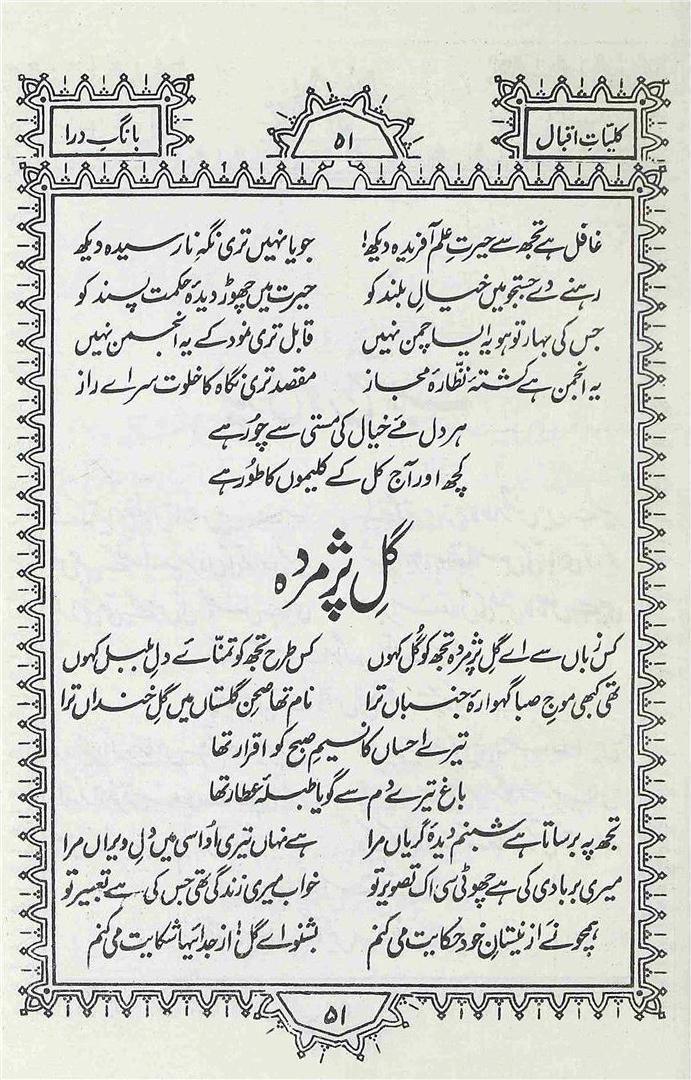 کلیاتِ اقبال ۵۱ بانگِ درا
غافل ہے تجھ سے حیرتِ علم آفریدہ دیکھ! جویا نہیں تری نگہِ نارسیدہ دیکھ
رہنے دے جستجو میں خیالِ بلند کو حیرت میں چھوڑ دیدۂ حکمت پسند کو
جس کی بہار تو ہو یہ ایسا چمن نہیں قابل تری نمود کے یہ انجمن نہیں
یہ انجمن ہے کشتۂ نظّارۂ مجاز مقصد تری نگاہ کا خلوت سرائے راز
ہر دل مئے خیال کی مستی سے چُور ہے
کچھ اور آج کل کے کلیموں کا طُور ہے
گُلِ پژمردہ
کس زباں سے اے گلِ پژمردہ تجھ کو گُل کہوں کس طرح تجھ کو تمنّائے دلِ بلبل کہوں
تھی کبھی موجِ صبا گہوارۂ جنباں ترا نام تھا صحنِ گلستاں میں گلِ خنداں ترا
تیرے احساں کا نسیمِ صبح کو اقرار تھا
باغ تیرے دم سے گویا طبلۂ عطّار تھا
تجھ پہ برساتا ہے شبنم دیدۂ گریاں مرا ہے نہاں تیری اُداسی میں دلِ ویراں مرا
میری بربادی کی ہے چھوٹی سی اک تصویر تو خواب میری زندگی تھی جس کی ہے تعبیر تو
ہمچو نے از نیستانِ خود حکایت می کنم بشنو اے گُل! از جدائیہا شکایت می کنم
۵۱